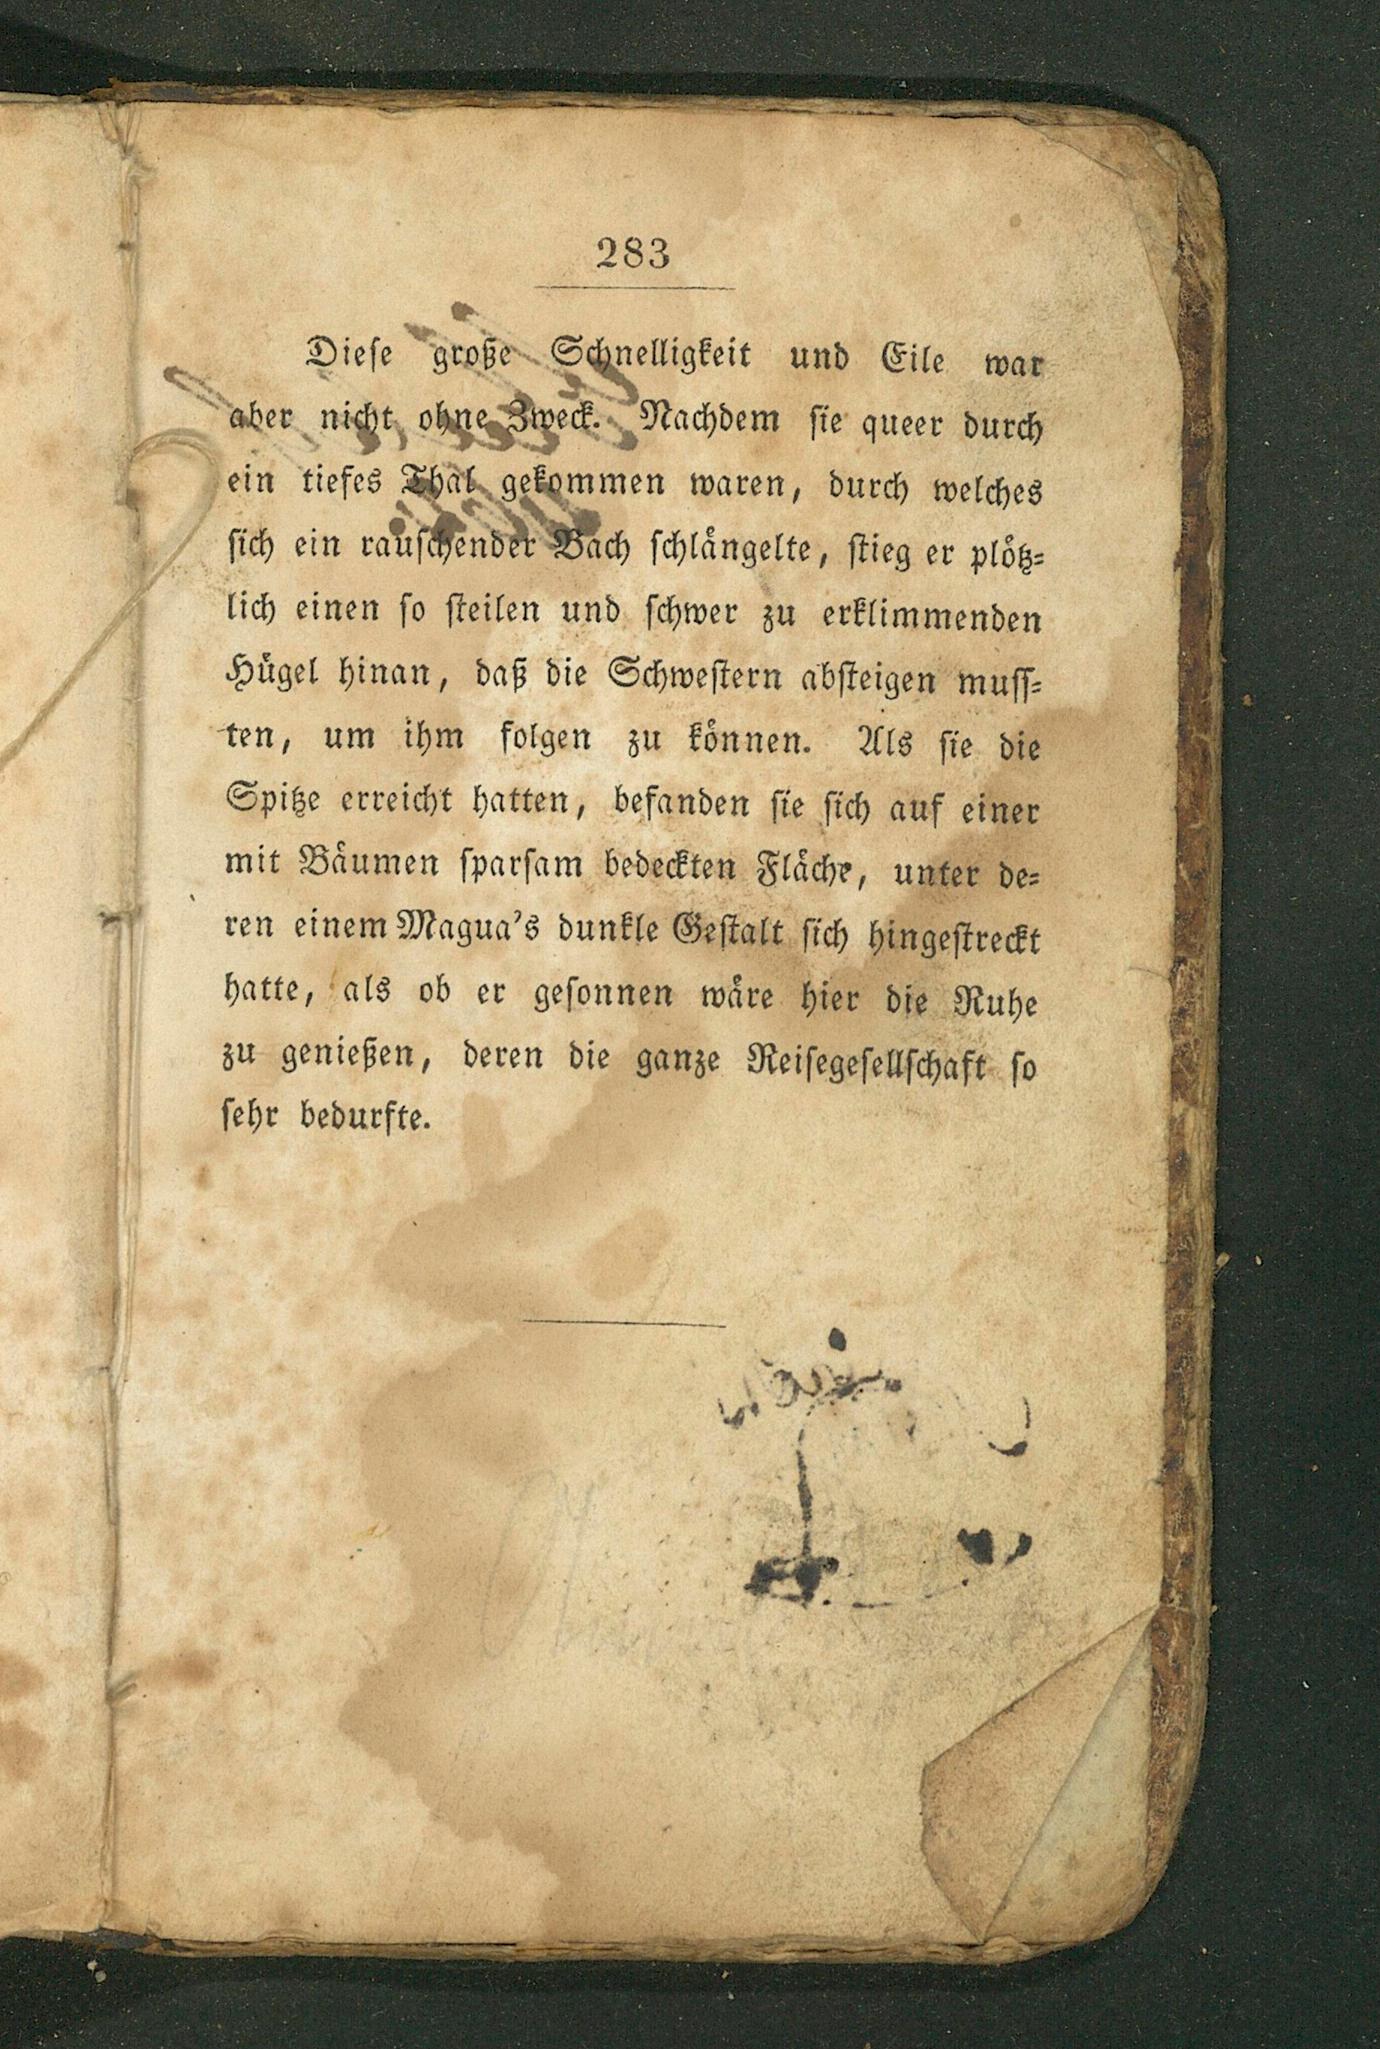 283
Diese große Schnelligkeit und Eile war
aber nicht ohne Zweck. Nachdem sie queer durch
ein tiefes Thal gekommen waren, durch welches
sich ein rauschender Bach schlängelte, stieg er plötz-
lich einen so steilen und schwer zu erklimmenden
Hügel hinan, daß die Schwestern absteigen muss-
ten, um ihm folgen zu können. Als sie die
Spitze erreicht hatten, befanden sie sich auf einer
mit Bäumen sparsam bedeckten Fläche, unter de-
ren einem Magua's dunkle Gestalt sich hingestreckt
hatte, als ob er gesonnen wäre hier die Ruhe
zu genießen, deren die ganze Reisegesellschaft so
sehr bedurfte.